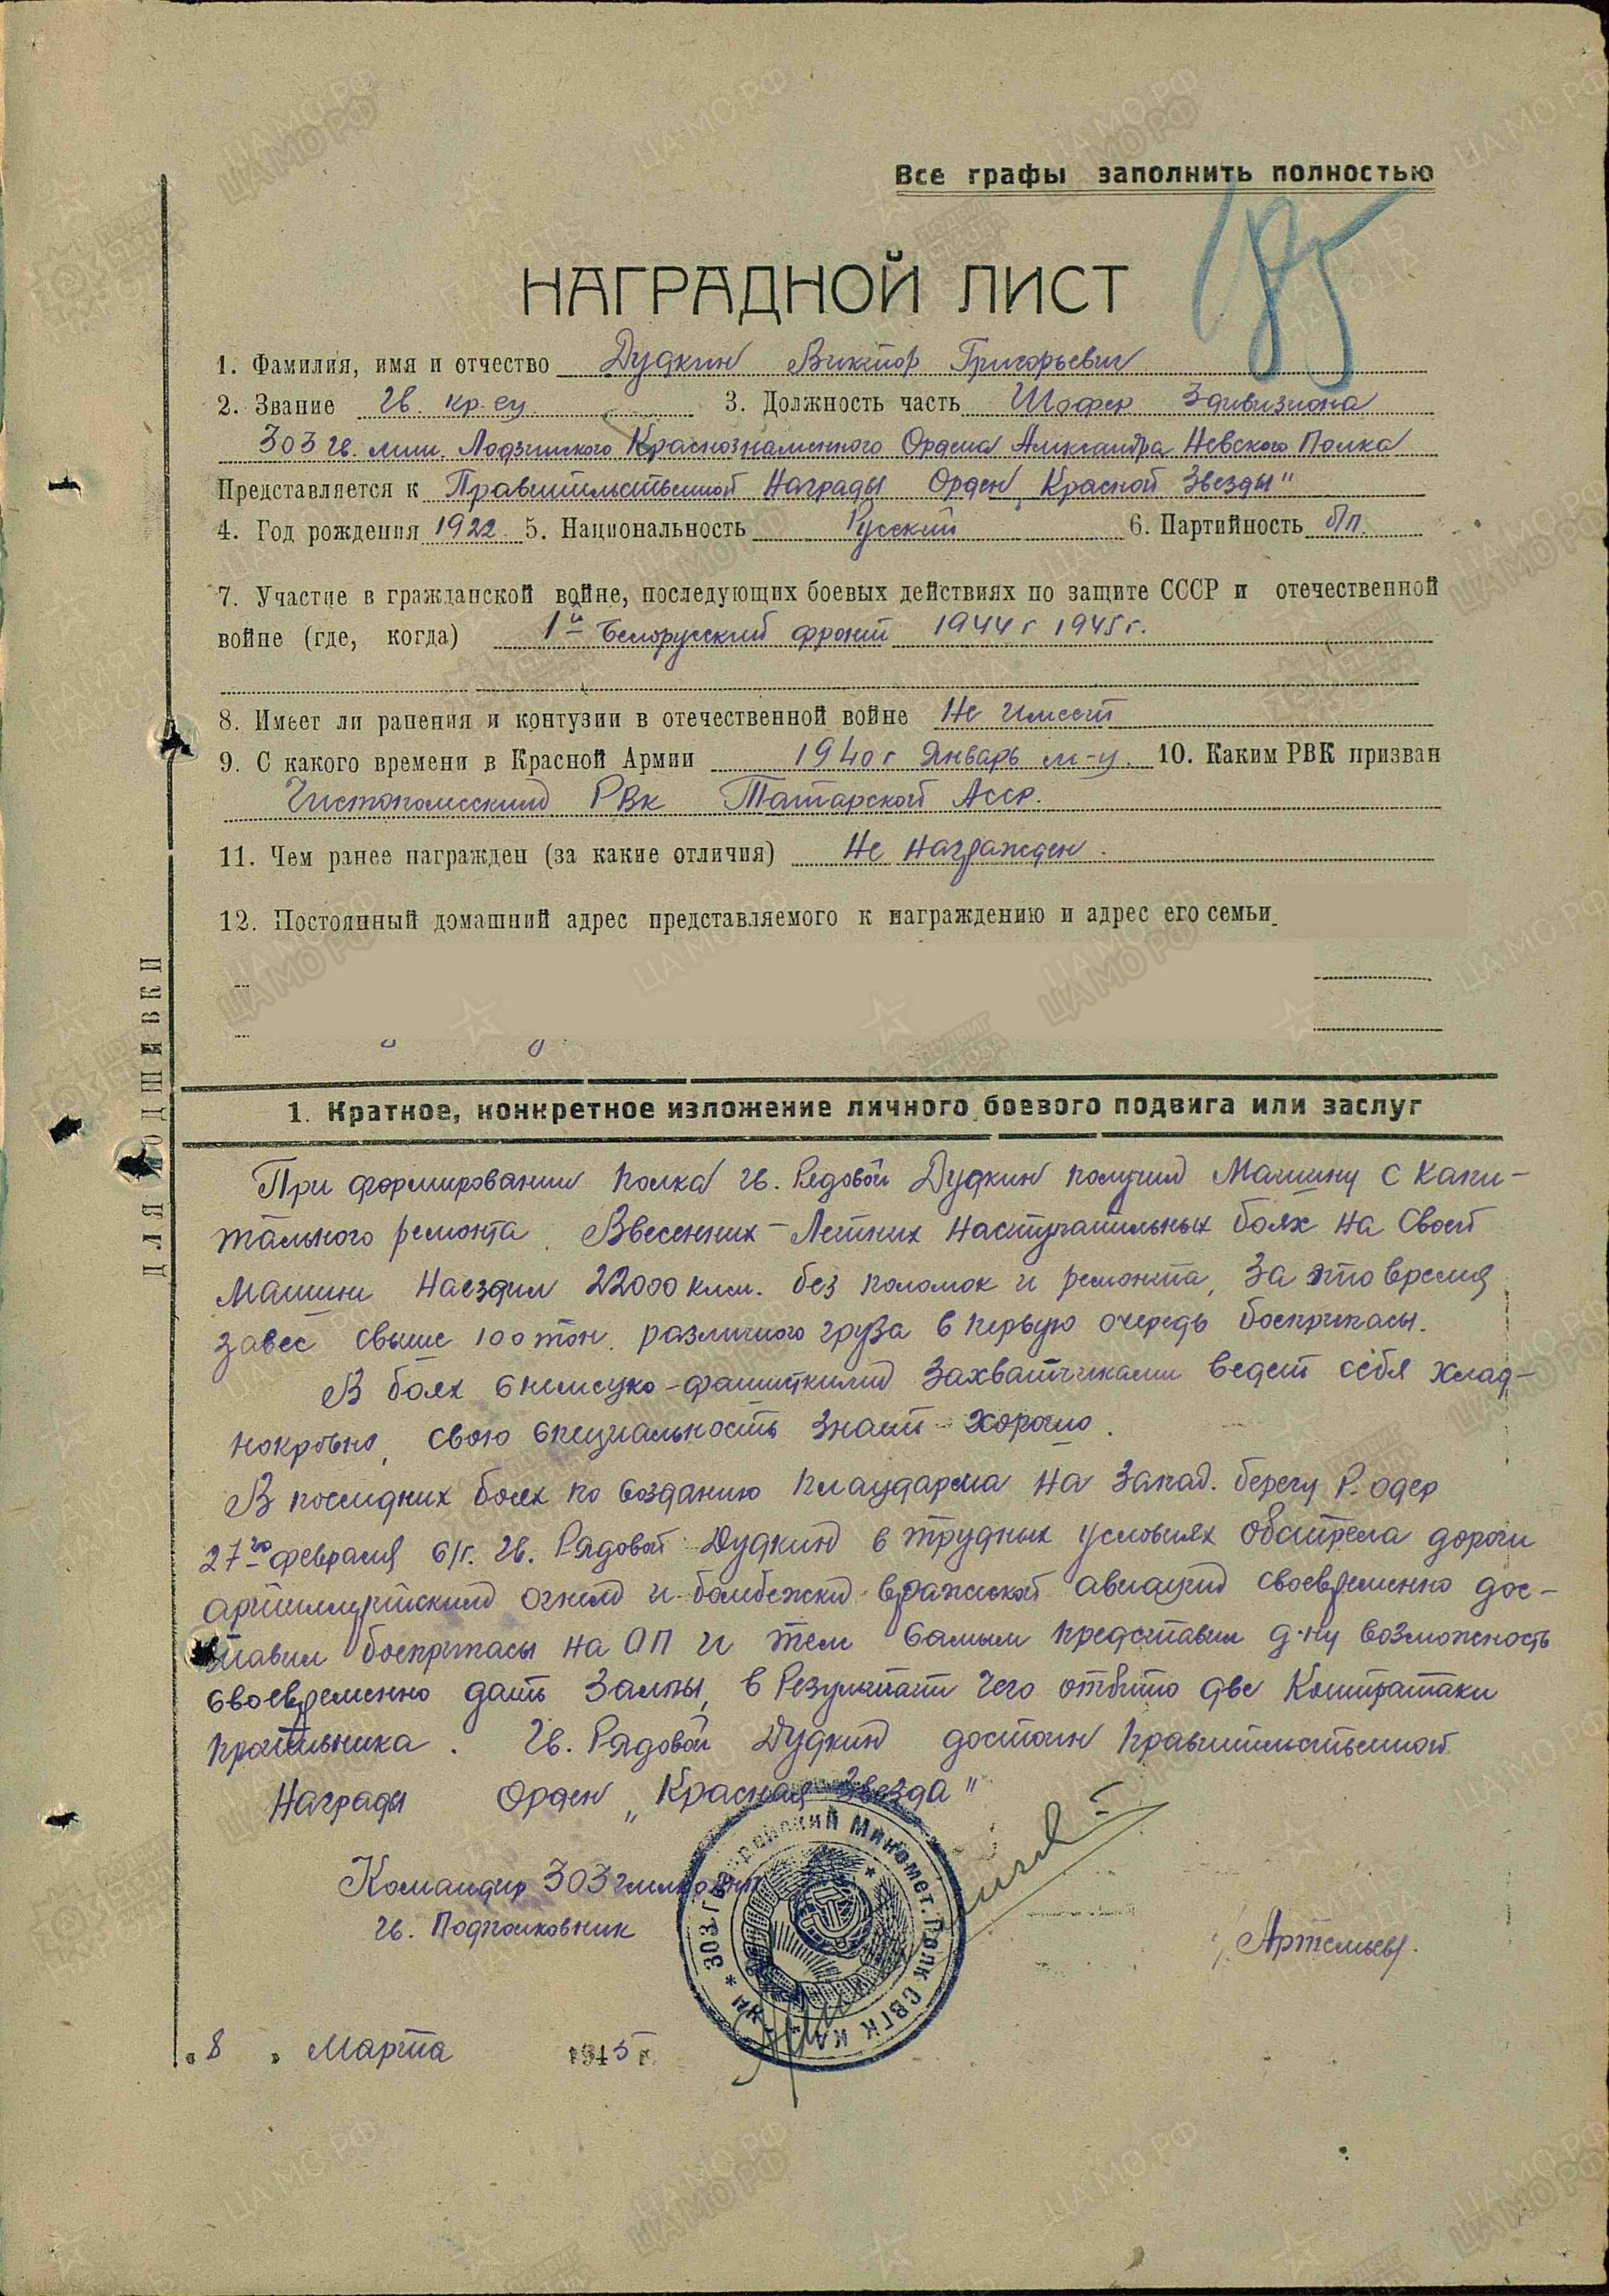 Все графы заполнить полностью
НАГРАДНОЙ ЛИСТ
1. Фамилия, имя и отчество Дудкин Виктор Григорьевич
2. Звание гв. кр-ец. 3. Должность часть Шофер 3 дивизиона
303 гв. мин. Лодзинского Краснознаменного Ордена Александра Невского Полка
Представляется к Правительственной Награды Орден Красной Звезды"
4. Год рождения 1922 5. Национальность Русский 6. Партийность б/п.
7. Участие в гражданской войне, последующих боевых действиях по защите СССР и отечественной
войне (где, когда) 1й Белорусский фронт 1944 г 1945 г.
8. Имеет ли ранения и контузии в отечественной войне Не имеет
9. С какого времени в Красной Армии 1940 г Январь м-ц. 10. Каким РВК призван
Чистопольским РВК Татарской Асср.
11. Чем ранее награжден (за какие отличия) Не награжден.
12. Постоянный домашний адрес представляемого к награждению и адрес его семьи
ДЛЯ ПОДШИВКИ
1. Краткое, конкретное изложение личного боевого подвига или заслуг
При формировании полка гв. Рядовой Дудкин получил Машину с капи-
тального ремонта. Ввесенних-Летних наступательных боях на своей
машине наездил 22000 клм. без поломок и ремонта, за это время
завес свыше 100 тон. различного груза в первую очередь боеприпасы.
В боях с немецко-фашисткими захватчиками ведет себя хлад-
нокровно, свою специальность знает хорошо.
В последних боях по созданию плацдарма на запад. берегу р. Одер
27го февраля с/г. гв. Рядовой Дудкин в трудных условиях обстрела дороги
артиллерийским огнем и бомбежки вражеской авиации своевременно дос-
тавил боеприпасы на ОП и тем самым предоставил д-ну возможность
своевременно дать залпы, в результате чего отбито две Контратаки
противника. Гв. Рядовой Дудкин достоин правительственной
Награды Орден „Красная Звезда"
Командир 303 гв. мин. полка
гв. Подполковник Артемьев.
303 Гвардейский Миномет. Полк СВГК КА
„8" Марта 1945 г.